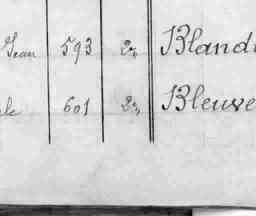 Jean 593 2⁰ Blandi
le 601 2⁰ Bleuve